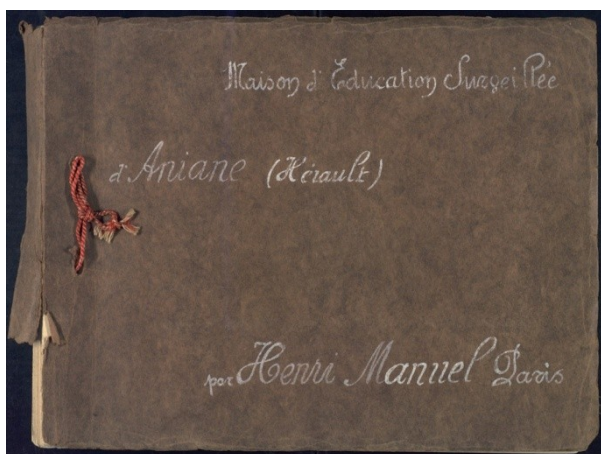 Maison d'Éducation Surveillée
d'Aniane (Hérault)
par Henri Manuel Paris